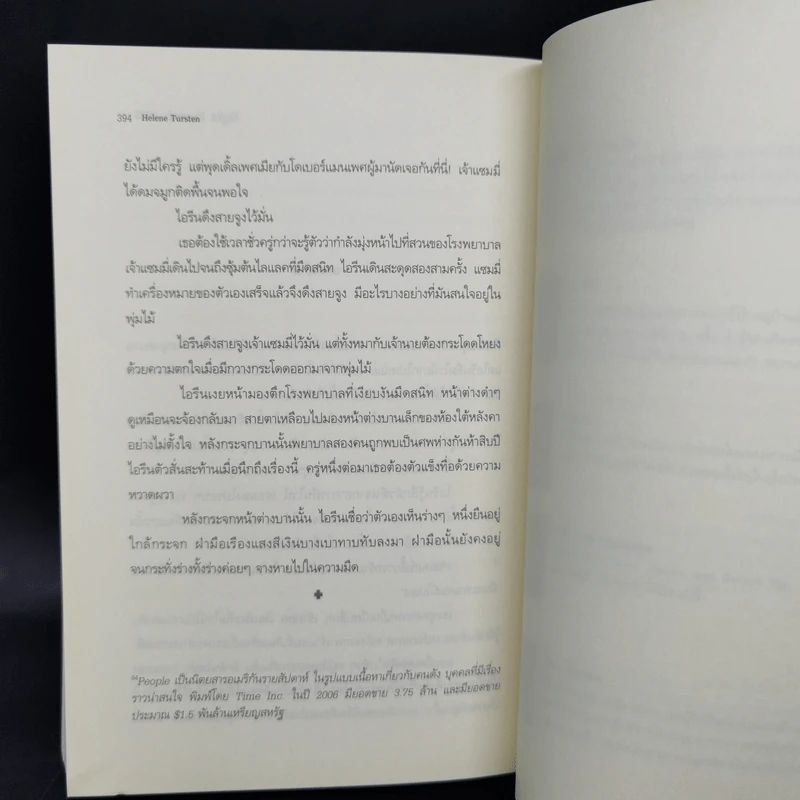 394 Helene Tursten
ยังไม่มีใครรู้ แต่พุดเดิ้ลเพศเมียกับโดเบอร์แมนเพศผู้มานัดเจอกันที่นี่! เจ้าแซมมี่
ได้ดมจมูกติดพื้นจนพอใจ
ไอรีนดึงสายจูงไว้มั่น
เธอต้องใช้เวลาชั่วครู่กว่าจะรู้ตัวว่ากำลังมุ่งหน้าไปที่สวนของโรงพยาบาล
เจ้าแซมมี่เดินไปจนถึงซุ้มต้นไลแลคที่มืดสนิท ไอรีนเดินสะดุดสองสามครั้ง แซมมี่
ทำเครื่องหมายของตัวเองเสร็จแล้วจึงดึงสายจูง มีอะไรบางอย่างที่มันสนใจอยู่ใน
พุ่มไม้
ไอรีนดึงสายจูงเจ้าแซมมี่ไว้มั่น แต่ทั้งหมากับเจ้านายต้องกระโดดโหยง
ด้วยความตกใจเมื่อมีกวางกระโดดออกมาจากพุ่มไม้
ไอรีนเงยหน้ามองตึกโรงพยาบาลที่เงียบงันมืดสนิท หน้าต่างดำๆ
ดูเหมือนจะจ้องกลับมา สายตาเหลือบไปมองหน้าต่างบานเล็กของห้องใต้หลังคา
อย่างไม่ตั้งใจ หลังกระจกบานนั้นพยาบาลสองคนถูกพบเป็นศพห่างกันห้าสิบปี
ไอรีนตัวสั่นสะท้านเมื่อนึกถึงเรื่องนี้ ครู่หนึ่งต่อมาเธอต้องตัวแข็งทื่อด้วยความ
หวาดผวา
หลังกระจกหน้าต่างบานนั้น ไอรีนเชื่อว่าตัวเองเห็นร่างๆ หนึ่งยืนอยู่
ใกล้กระจก ฝามือเรืองแสงสีเงินบางเบาทาบทับลงมา ฝามือนั้นยังคงอยู่
จนกระทั่งร่างทั้งร่างค่อยๆ จางหายไปในความมืด
People เป็นนิตยสารอเมริกันรายสัปดาห์ ในรูปแบบเนื้อหาเกี่ยวกับคนดัง บุคคลที่มีเรื่อง
ราวน่าสนใจ พิมพ์โดย Time Inc. ในปี 2006 มียอดขาย 3.75 ล้าน และมียอดขาย
ประมาณ $1.5 พันล้านเหรียญสหรัฐ